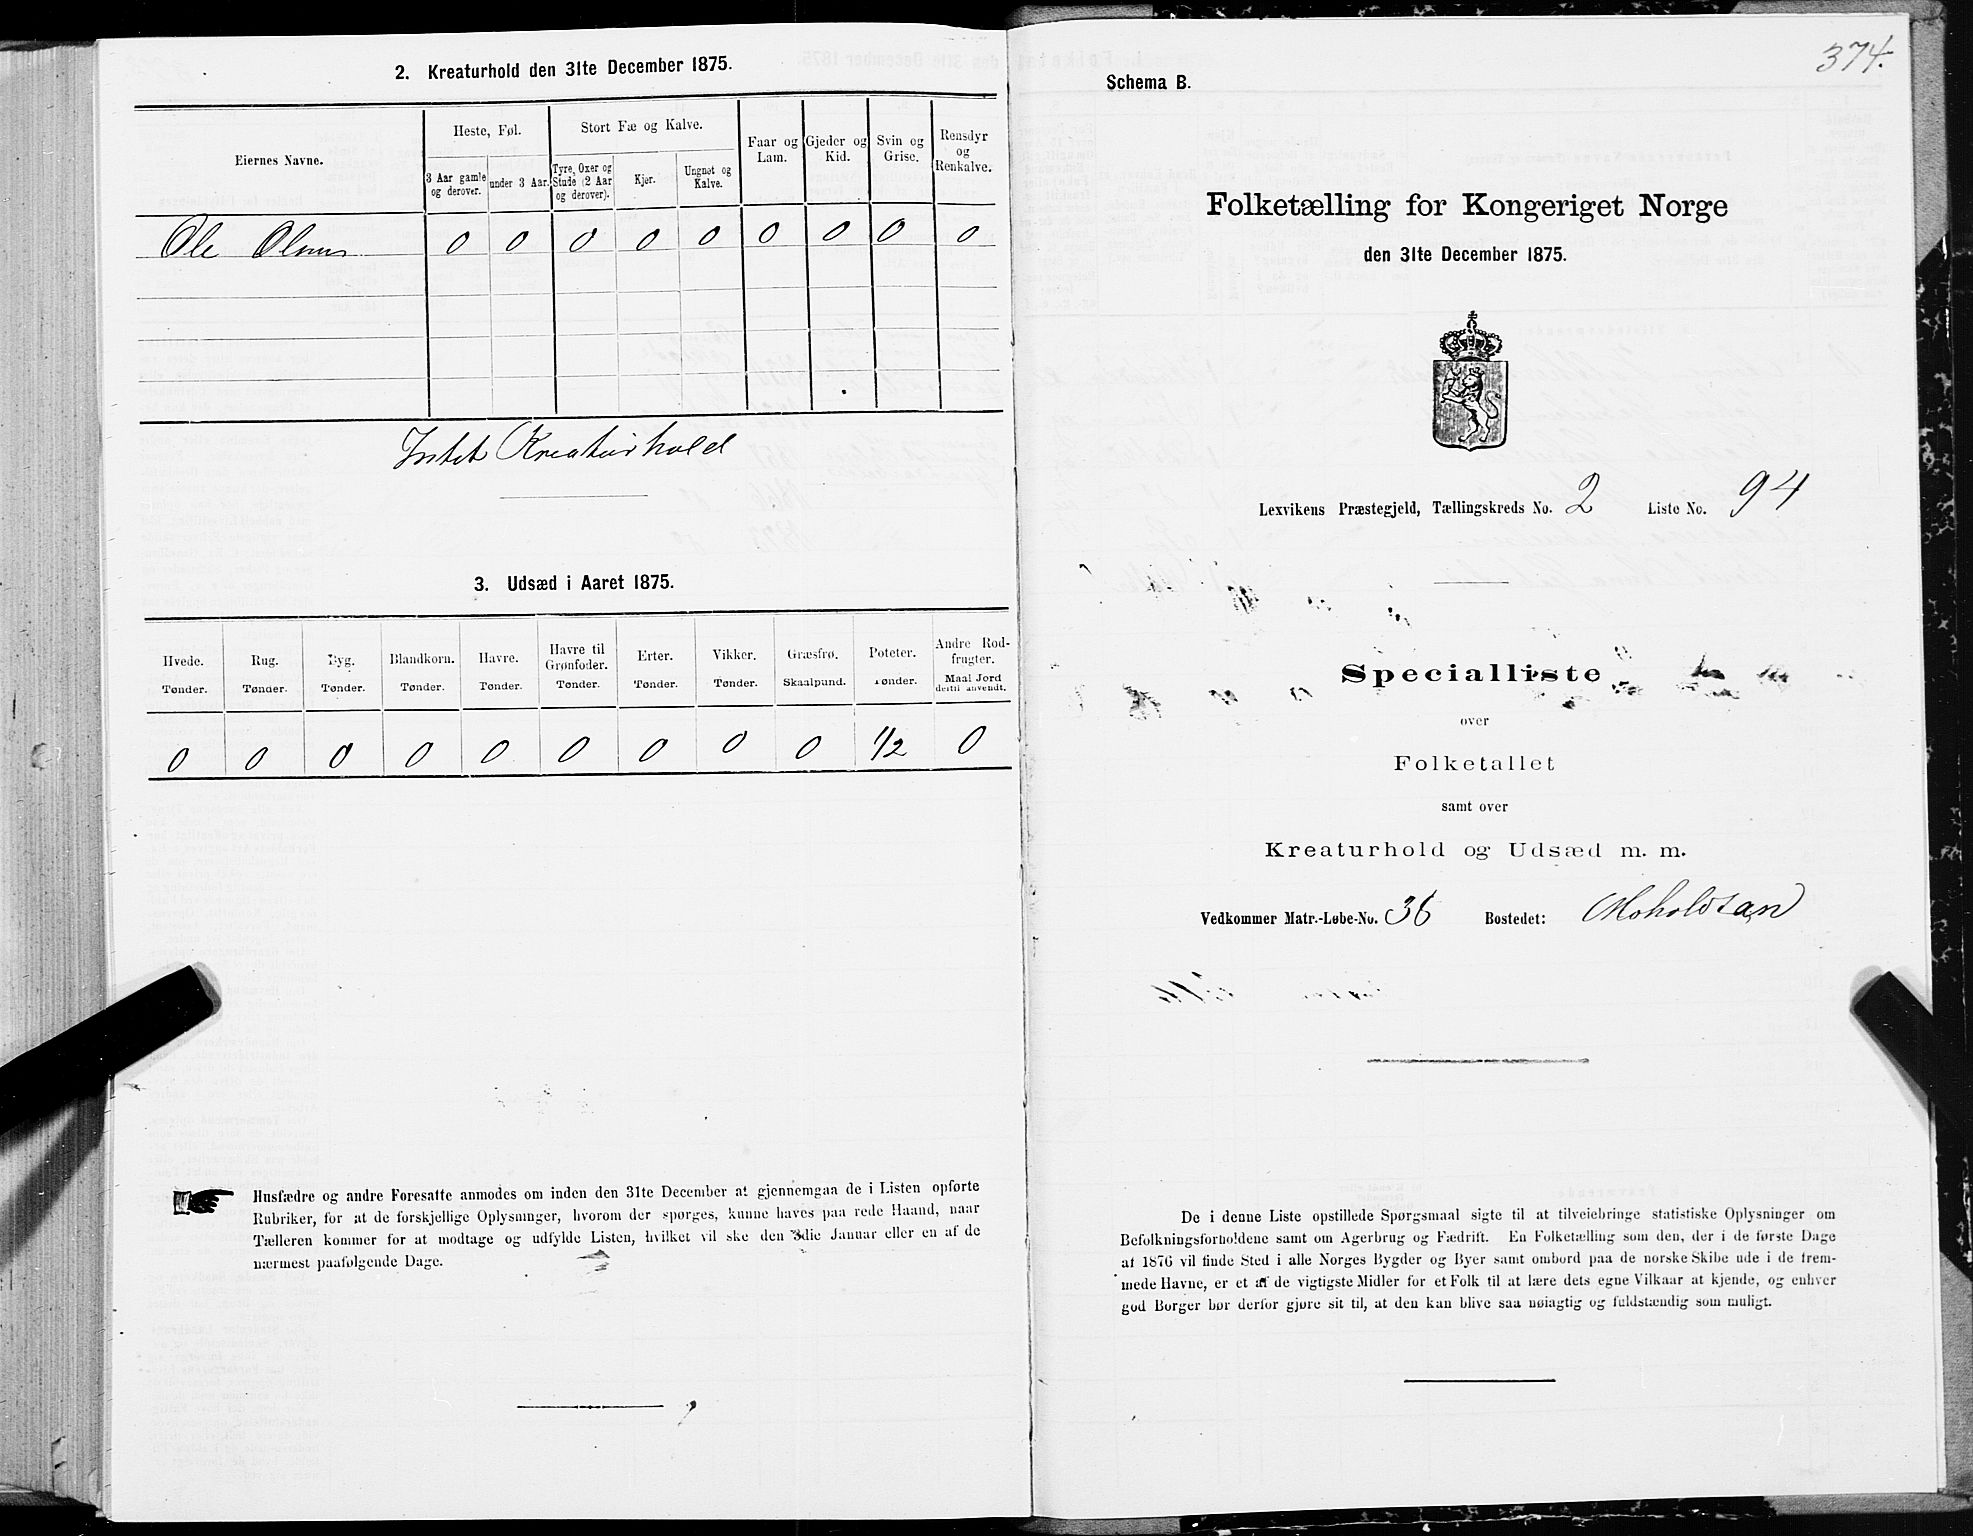 2. Kreaturhold den 31te December 1875.
Eiernes Navne.
Heste, Føl.
Stort Fæ og Kalve.
Faar og Lam.
Gjeder og Kid.
Svin og Grise.
Rensdyr og Renkalve.
3 Aar gamle og derover.
under 3 Aar.
Tyre, Oxer og Stude (2 Aar og derover).
Kjør.
Ungnøt og Kalve.
Ole Olsen 0 0 0 0 0 0 0 0 0
Intet Kreaturhold
3. Udsæd i Aaret 1875.
Hvede. Rug. Byg. Blandkorn. Havre. Havre til Grønfoder. Erter. Vikker. Græsfrø. Poteter. Andre Rodfrugter.
Tønder. Tønder. Tønder. Tønder. Tønder. Tønder. Tønder. Tønder. Skaalpund. Tønder. Maal Jord dertil anvendt.
0 0 0 0 0 0 0 0 0 1/2 0
Husfædre og andre Foresatte anmodes om inden den 31te December at gjennemgaa de i Listen opførte
Rubriker, for at de forskjellige Oplysninger, hvorom der spørges, kunne haves paa rede Haand, naar
Tælleren kommer for at modtage og udfylde Listen, hvilket vil ske den 3die Januar eller en af de
nærmest paafølgende Dage.
374.
Schema B.
Folketælling for Kongeriget Norge
den 31te December 1875.
Lexvikens Præstegjeld, Tællingskreds No. 2 Liste No. 94
Specialliste
over
Folketallet
samt over
Kreaturhold og Udsæd m. m.
Vedkommer Matr.-Løbe-No. 36 Bostedet: Moholdtan
De i denne Liste opstillede Spørgsmaal sigte til at tilveiebringe statistiske Oplysninger om
Befolkningsforholdene samt om Agerbrug og Fædrift. En Folketælling som den, der i de første Dage
af 1876 vil finde Sted i alle Norges Bygder og Byer samt ombord paa de norske Skibe ude i de frem-
mede Havne, er et af de vigtigste Midler for et Folk til at lære dets egne Vilkaar at kjende, og enhver
god Borger bør derfor gjøre sit til, at den kan blive saa nøiagtig og fuldstændig som muligt.